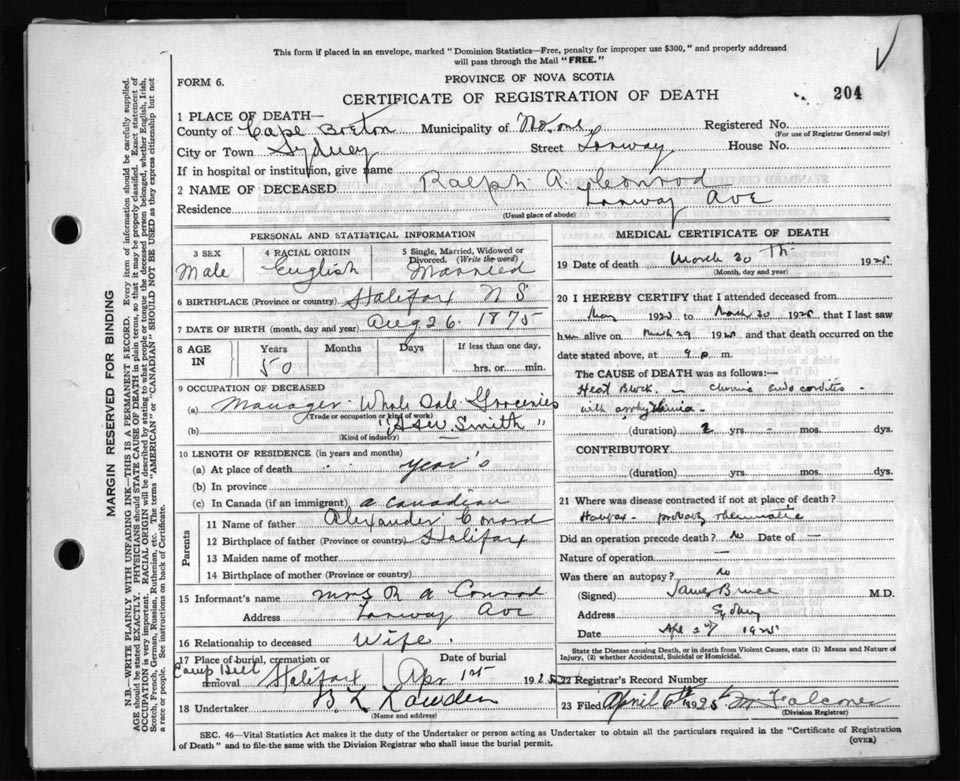 This form if placed in an envelope, marked "Dominion Statistics—Free, penalty for improper use $300," and properly addressed
will pass through the Mail "FREE."
FORM 6.
PROVINCE OF NOVA SCOTIA
CERTIFICATE OF REGISTRATION OF DEATH
204
1 PLACE OF DEATH—
County of Cape Breton Municipality of No. one Registered No.
(For use of Registrar General only)
City or Town Sydney Street Lanway House No.
If in hospital or institution, give name
2 NAME OF DECEASED Ralph A. Conrod
Residence Lanway Ave
(Usual place of abode)
PERSONAL AND STATISTICAL INFORMATION
3 SEX Male
4 RACIAL ORIGIN English
5 Single, Married, Widowed or Divorced. (Write the word) Married
6 BIRTHPLACE (Province or country) Halifax N S
7 DATE OF BIRTH (month, day and year) Aug 26. 1875
8 AGE IN Years 50 Months Days If less than one day, hrs. or min.
9 OCCUPATION OF DECEASED
(a) Manager Whole Sale Groceries
(Trade or occupation or kind of work)
(b) Smith "
(Kind of industry)
10 LENGTH OF RESIDENCE (in years and months)
(a) At place of death year's
(b) In province
(c) In Canada (if an immigrant) a Canadian
Parents
11 Name of father Alexander Conrod
12 Birthplace of father (Province or country) Halifax
13 Maiden name of mother
14 Birthplace of mother (Province or country)
15 Informant's name Mrs R A Conrod
Address Lanway Ave
16 Relationship to deceased Wife.
17 Place of burial, cremation or removal Camp Hill Halifax
Date of burial Apr 1st 1925
18 Undertaker
(Name and address)
MEDICAL CERTIFICATE OF DEATH
19 Date of death March 30 Th 1925
(Month, day and year)
20 I HEREBY CERTIFY that I attended deceased from
May 192 to March 30 1925, that I last saw
him alive on March 29 1925 and that death occurred on the
date stated above, at 9 p m.
The CAUSE OF DEATH was as follows:—
Heart Block. Chronic endocarditis
with arrhythmia
(duration) 2 yrs. mos. dys.
CONTRIBUTORY
(duration) yrs. mos. dys.
21 Where was disease contracted if not at place of death?
Halifax - probably rheumatic
Did an operation precede death? No Date of —
Nature of operation —
Was there an autopsy? No
(Signed) James Bruce M.D.
Address Sydney
Date Apl 1925
State the Disease causing Death, or in death from Violent Causes, state (1) Means and Nature of
Injury, (2) whether Accidental, Suicidal or Homicidal.
22 Registrar's Record Number
23 Filed April 6th 1925
(Division Registrar)
SEC. 46—Vital Statistics Act makes it the duty of the Undertaker or person acting as Undertaker to obtain all the particulars required in the "Certificate of Registration
of Death" and to file the same with the Division Registrar who shall issue the burial permit.
(OVER)
MARGIN RESERVED FOR BINDING
N.B.—WRITE PLAINLY WITH UNFADING INK—THIS IS A PERMANENT RECORD. Every item of information should be carefully supplied.
AGE should be stated EXACTLY. PHYSICIANS should STATE CAUSE OF DEATH in plain terms, so that it may be properly classified. Exact statement of
OCCUPATION is very important. RACIAL ORIGIN will be described by stating to what people or tongue the deceased person belonged, whether English, Irish,
Scotch, French, German, Russian, Ruthenian, etc. The terms "AMERICAN" or "CANADIAN" SHOULD NOT BE USED as they express citizenship but not
a race or people. See instructions on back of Certificate.